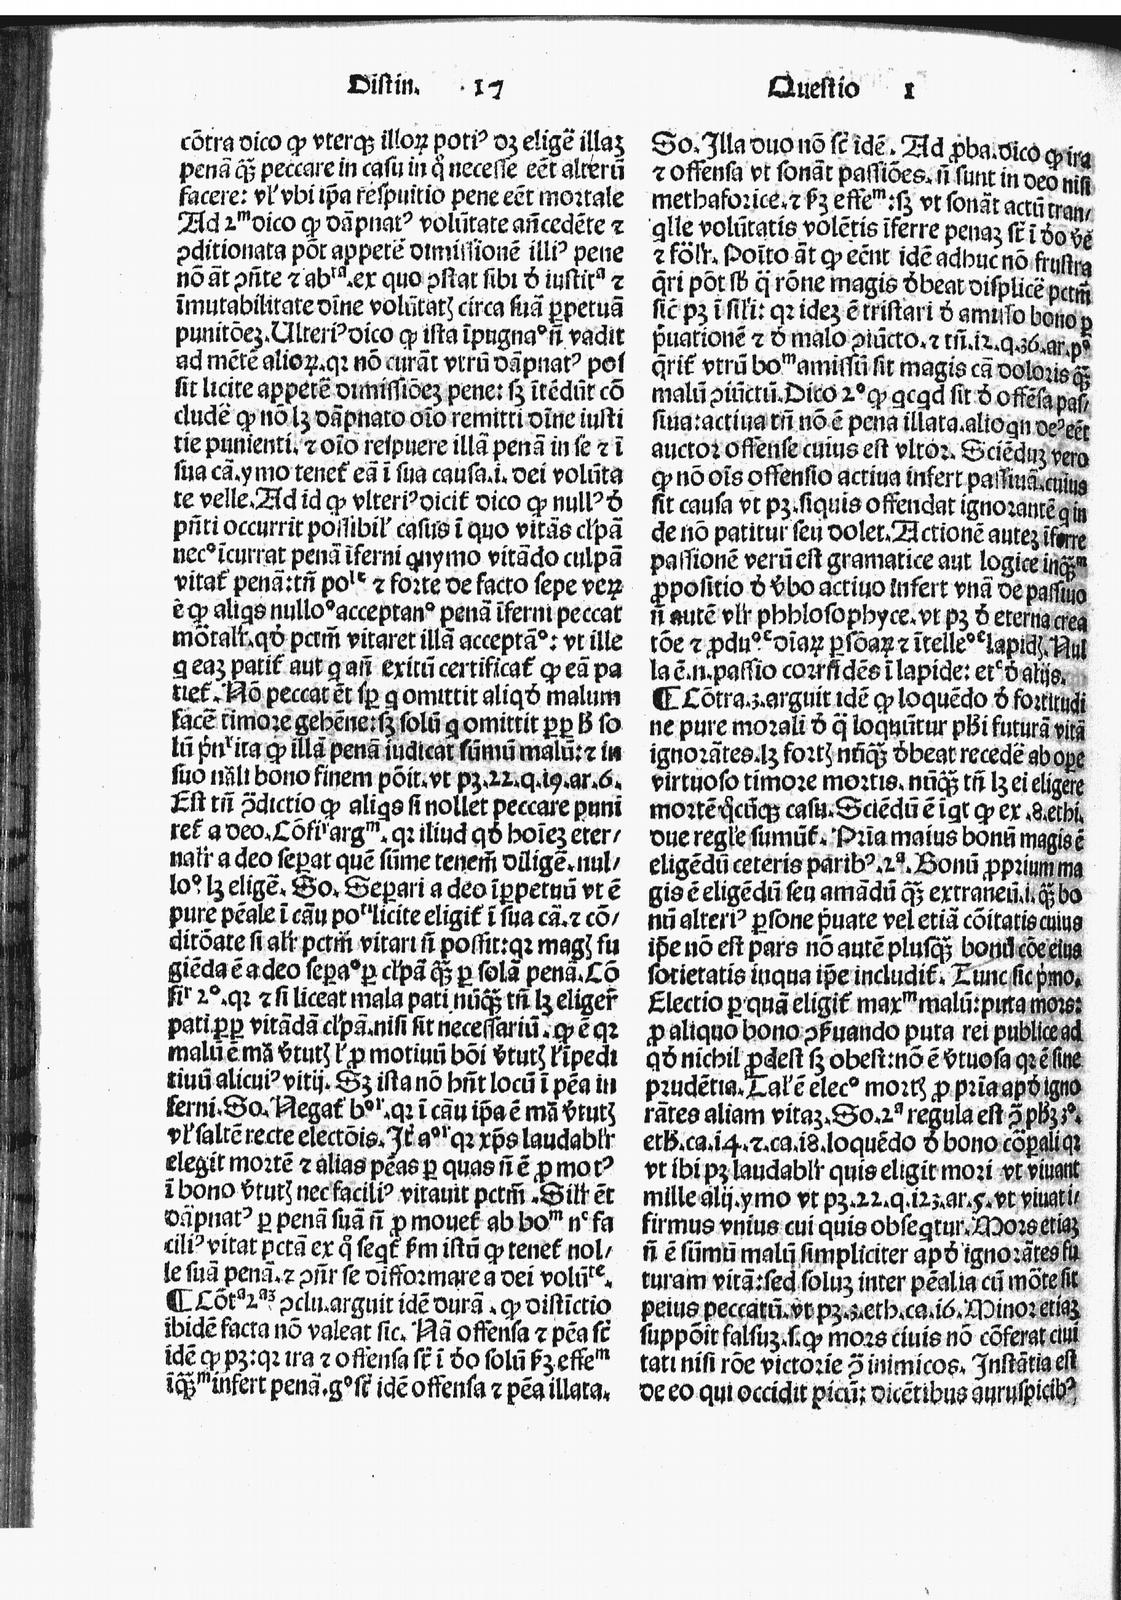 Distin. 17
Questio 1
cōtra dico ꝙ vterqꝫ illoꝝ potiꝰ dꝫ eligē illaꝫ
penā qꝫ̄ peccare in casu in quo necesse eēt alterū
facere: vl' vbi ip̄a respuitio pene eēt mortale
Ad 2ᵐ dico ꝙ dāpnatꝰ volūtate añcedēte ⁊
ꝯditionata pōt appetē dimissionē illiꝰ pene
nō āt ꝯñte ⁊ abᵗᵃ. ex quo ꝯstat sibi đ iustitᵃ ⁊
īmutabilitate diīne volūtatꝫ circa suā ꝑpetuā
punitōeꝫ. Ulteriꝰ dico ꝙ ista īpugnaᵒ ñ vadit
ad mētē alioꝝ. qr nō curāt vtrū dāpnatꝰ pos
sit licite appetē dimissiōeꝫ pene: sꝫ ītēdūt cō
cludē ꝙ nō lꝫ dāpnato oīo remitti diīne iusti
tie punienti. ⁊ oīo respuere illā penā in se ⁊ ī
sua cā. ymo tenet̄ eā ī sua causa. i. dei volūta
te velle. Ad id ꝙ vlteriꝰ dicit̄ dico ꝙ nullꝰ đ
pñti occurrit possibil' casus ī quo vitās cl'pā
necᵒ īcurrat penā īferni qnymo vitādo culpā
vitat̄ penā: tñ poˡᵉ ⁊ forte de facto sepe veꝝ
ē ꝙ aliqs nulloᵒ acceptanᵒ penā īferni peccat
mōtalr̄. qđ pctm̄ vitaret illā acceptāᵒ: vt ille
q eaꝫ patit̄ aut q añ exitū certificat̄ ꝙ eā pa
tiet̄. Nō peccat ēt sꝑ q omittit aliqđ malum
facē timore gehēne: sꝫ solū q omittit ꝓpꝑ ꝥ so
lū ita ꝙ illā penā iudicat sūmū malū: ⁊ in
suo nāli bono finem pōit. vt pꝫ. 22. q. 19. ar. 6.
Est tñ ꝯ̄dictio ꝙ aliqs si nollet peccare puni
ret̄ a deo. Cōfir̄ argᵐ. qr illud qđ hoīeꝫ eter/
nalr̄ a deo seꝑat quē sūme tenem̄ diligē. nul/
loᵒ lꝫ eligē. So. Seꝑari a deo īꝑpetuū vt ē
pure pēale ī cāu poᵗ licite eligit̄ ī sua cā. ⁊ cō/
ditōate si alr̄ pctm̄ vitari ñ possit: qr magꝫ fu
giēda ē a deo seꝑaᵒ ꝑ cl'pā qꝫ̄ ꝑ solā penā. Cō
fir̄ 2ᵒ. qr ⁊ si liceat mala pati nūqꝫ̄ tñ lꝫ eliger̄
pati ꝓpꝑ vitādā cl'pā. nisi sit necessariū. ꝙ ē qr
malū ē mā v̄tutꝫ l' ꝓ motiuū bōi v̄tutꝫ l' īpedi
tiuū alicuiꝰ vitij. Sꝫ ista nō hñt locū ī pēa in
ferni. So. Negat̄ qr ī cāu ip̄a ē mā v̄tutꝫ
vl' saltē recte electōis. qr xp̄s laudablr̄
elegit mortē ⁊ alias pēas ꝑ quas ñ ē ꝓmotꝰ
ī bono v̄tutꝫ nec faciliꝰ vitauit pctm̄. Silr̄ ēt
dāpnatꝰ ꝑ penā suā ñ ꝓmouet̄ ab boᵐ nᶜ fa
ciliꝰ vitat pctā ex quo seqt̄ ẜm istū ꝙ tenet̄ nol/
le suā penā. ⁊ ꝯñr se difformare a dei volūᵗᵉ.
¶ Cōtᵃ 2ᵃꝫ ꝯclu. arguit idē durā. ꝙ distīctio
ibidē facta nō valeat sic. Nā offensa ⁊ pēa st̄
idē ꝙ pꝫ: qr ira ⁊ offensa st̄ ī đo solū ẜꝫ effeᵐ
īqꝫ̄ᵐ infert penā. gᵒ st̄ idē offensa ⁊ pēa illata.
So. Illa duo nō st̄ idē. Ad ꝓba. dico ꝙ ira
⁊ offensa vt sonāt passiōes. ñ sunt in deo nisi
methaforice. ⁊ ẜꝫ effeᵐ: sꝫ vt sonāt actū tran/
qlle volūtatis volētis īferre penaꝫ st̄ ī đo v̄e
⁊ fōlr̄. Poīto āt ꝙ eēnt idē adhuc nō frustra
qri pōt sb̄ q̄ rōne magis đbeat displicē pctm̄
sic̄ pꝫ ī sil'i: qr ideꝫ ē tristari đ amisso bono ꝑ
p̄uationē ⁊ đ malo ꝯiūcto. ⁊ tñ. 12. q. 36. ar. pᵒ
qrit̄ vtrū boᵐ amissū sit magis cā doloris qꝫ̄
malū ꝯiūctū. Dico 2ᵒ ꝙ qcqd sit đ offēsa pas/
siua: actiua tñ nō ē pena illata. alioqn deꝰ eēt
auctor offense cuius est vltor. Sciēduꝫ vero
ꝙ nō oīs offensio actiua infert passiuā. cuius
sit causa vt pꝫ. siquis offendat ignorantē q in
de nō patitur seu dolet. Actionē auteꝫ īferre
passionē verū est gramatice aut logice inqꝫ̄ᵐ
ꝓpositio đ v̄bo actiuo infert vnā de passiuo
ñ autē vlr̄ phhlosophyce. vt pꝫ đ eterna crea
tōe ⁊ ꝓduᵒᵉ diāꝝ ꝑsōaꝝ ⁊ ītelleᵒᵉ lapidꝫ. Nul
la ē. n. passio corrñdēs ī lapide: etᶜ đ alijs.
¶ Cōtra. 3. arguit idē ꝙ loquēdo đ fortitudi
ne pure morali đ q̄ loqūtur phī futurā vitā
ignorātes. lꝫ fortꝫ nūqꝫ̄ đbeat recedē ab oꝑe
virtuoso timore mortis. nūqꝫ̄ tñ lꝫ ei eligere
mortē qcūqꝫ casu. Sciēdū ē igt̄ ꝙ ex. 8. ethi.
due regl'e sumūt̄. Pria maius bonū magis ē
eligēdū ceteris paribꝰ. 2ᵃ. Bonū ꝓprium ma
gis ē eligēdū seu amādū qꝫ̄ extraneū. i. qꝫ̄ bo
nū alteriꝰ ꝑsone p̄uate vel etiā cōitatis cuius
ip̄e nō est pars nō autē plusqꝫ̄ bonū cōe eius
societatis inqua ip̄e includit̄. Tunc sic p̄mo.
Electio ꝑ quā eligit̄ maxᵐ malū: puta mors:
ꝓ aliquo bono ꝯẜuando puta rei publice ad
qđ nichil ꝓdest sꝫ obest: nō ē v̄tuosa qr ē sine
prudētia. Tal' ē elecᵒ mortꝫ ꝓ pria apđ igno
rātes aliam vitaꝫ. So. 2ᵃ regula est ꝯ̄ pħꝫ 3ᵒ.
eth. ca. 14. ⁊. ca. 18. loquēdo đ bono cōꝑali qr
vt ibi pꝫ laudablr̄ quis eligit mori vt viuant
mille alij. ymo vt pꝫ. 22. q. 123. ar. 5. vt viuat i/
firmus vnius cui quis obseqtur. Mors etiaꝫ
ñ ē sūmū malū simpliciter apđ ignorātes fu
turam vitā: sed soluꝫ inter pēalia cū mōte sit
peius peccatū. vt pꝫ. 3. eth. ca. 16. Minor etiaꝫ
suppōit falsuꝫ. s. ꝙ mors ciuis nō cōferat ciui
tati nisi rōe victorie ꝯ̄ inimicos. Instātia est
de eo qui occidit picū: dicētibus auruspicibꝰ